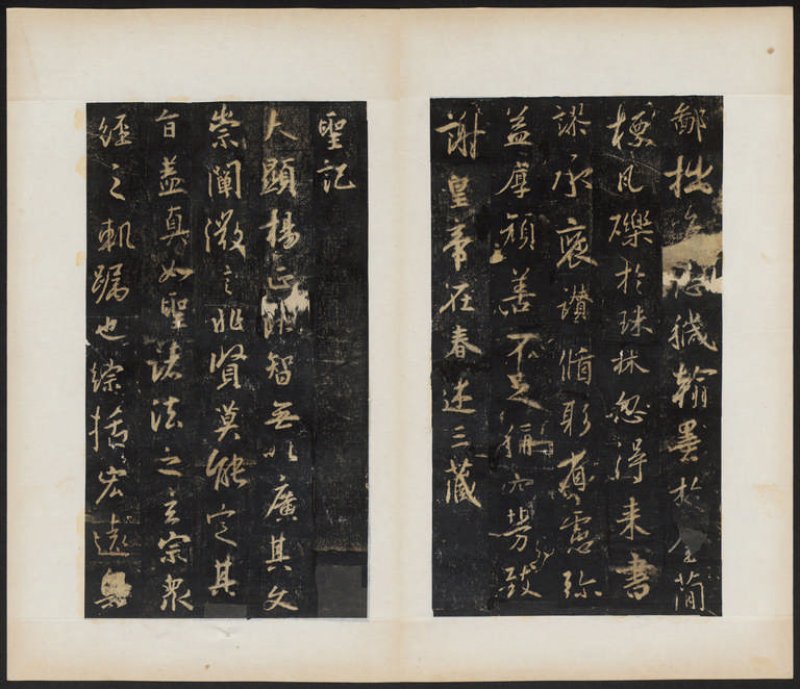 鄙拙恐穢翰墨於金簡
標瓦礫於珠林忽得來書
謬承褒讚循躬省慮彌
益厚顏善不足稱空勞致
謝皇帝在春述三藏
聖記
夫顯揚正智無以廣其文
崇闡微言非賢莫能定其
旨蓋真如聖諸法之玄宗衆
經之軌躅也綜括宏遠奧